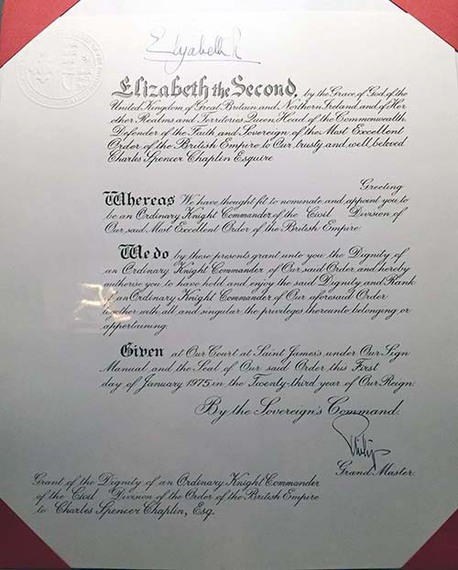 Elizabeth R
Elizabeth the Second, by the Grace of God, of the
United Kingdom of Great Britain and Northern Ireland and of Her
other Realms and Territories Queen, Head of the Commonwealth,
Defender of the Faith and Sovereign of the Most Excellent
Order of the British Empire to Our trusty and well beloved
Charles Spencer Chaplin Esquire
Greeting
Whereas We have thought fit to nominate and appoint you to
be an Ordinary Knight Commander of the Civil Division of
Our said Most Excellent Order of the British Empire:
We do by these presents grant unto you the Dignity of
an Ordinary Knight Commander of Our said Order and hereby
authorise you to have hold and enjoy the said Dignity and Rank
of an Ordinary Knight Commander of Our aforesaid Order
together with all and singular the privileges thereunto belonging or
appertaining.
Given at Our Court at Saint James's under Our Sign
Manual and the Seal of Our said Order this First
day of January 1975 in the Twenty-third year of Our Reign.
By the Sovereign's Command.
Philip
Grand Master.
Grant of the Dignity of an Ordinary Knight Commander
of the Civil Division of the Order of the British Empire
to Charles Spencer Chaplin, Esq.